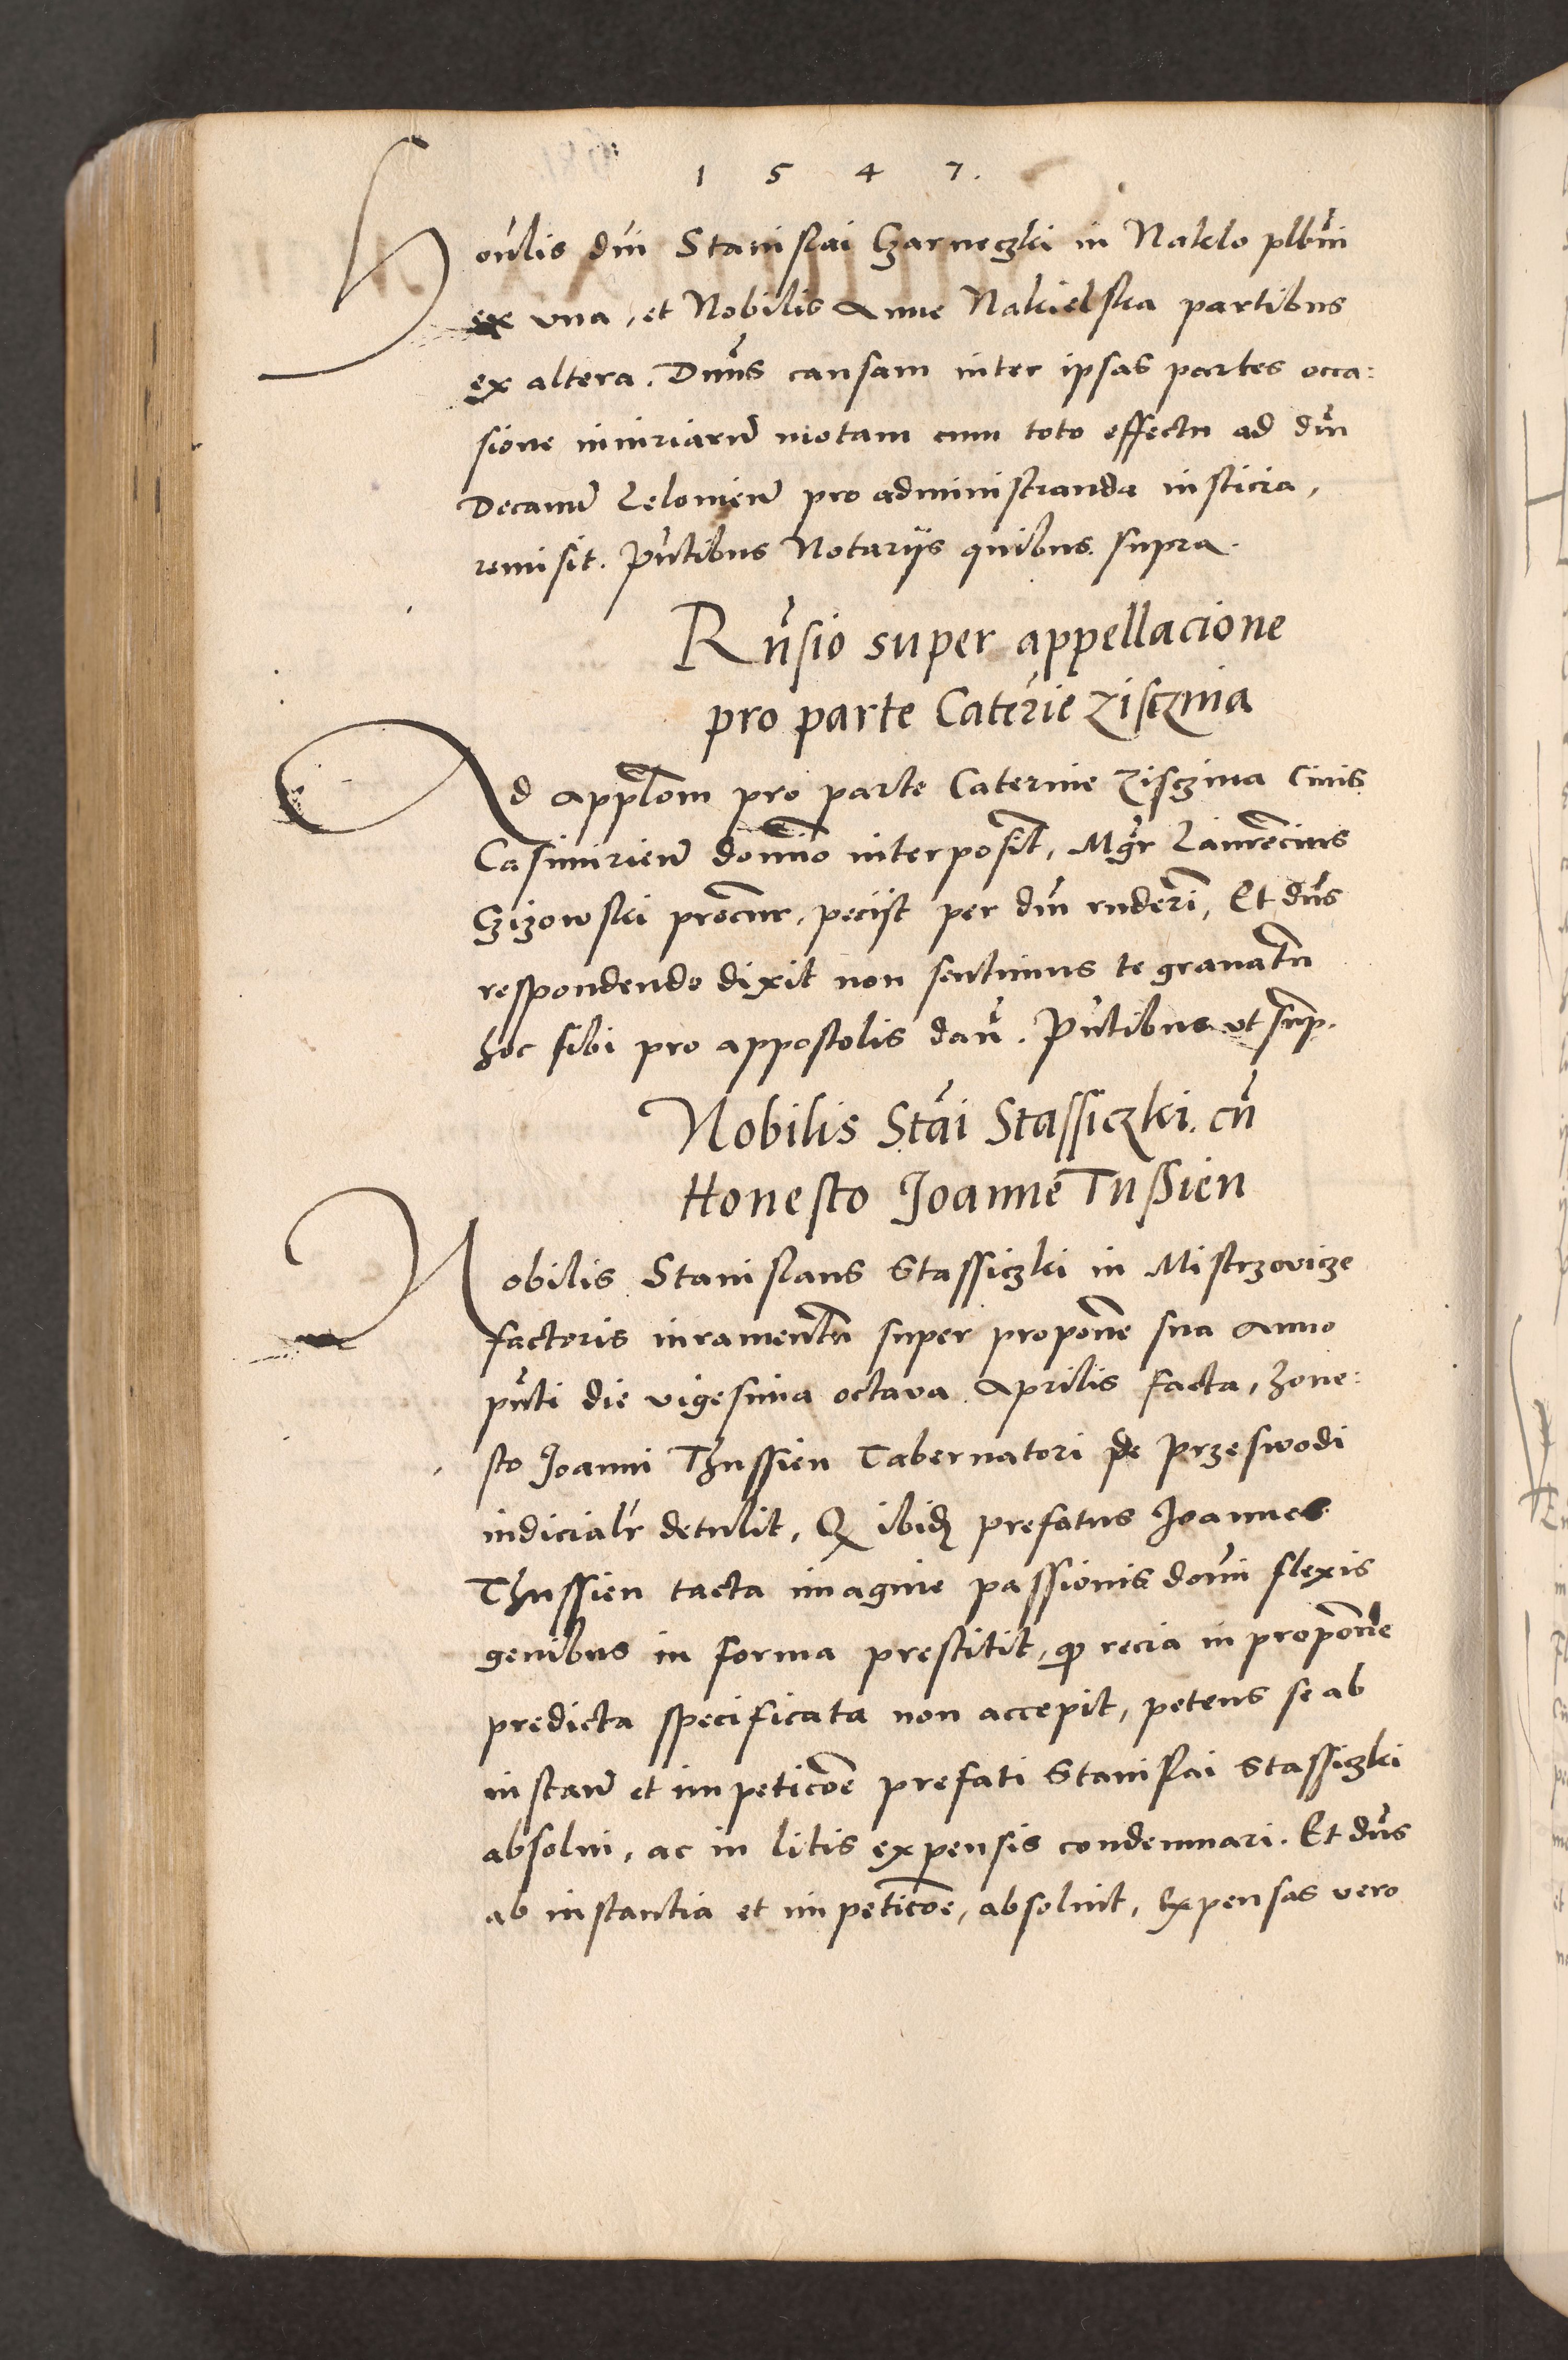 1 5 4 7.
Hoñlis dñi Stanislai Czarneczki in Naklo plbñi
ex una, et Nobilis Anne Nakielska partibus
ex altera. Dnus causam inter ipsas partes occa:
sione iniuriarũ motam cum toto effectu ad dñm
Decanũ Lelovieñ pro administranda iusticia,
remisit. Pñtibus Notarijs quibus supra.
Rñsio super appellacione
pro parte Caterie Zisczina
Ad appl̃om pro parte Caterine Zisczina Civis
Casimirieñ domĩo interposit̃, Mgr̃ Laurẽcius
Czizowski procur̃, peciit per dñm rnderĩ, Et dñs
respondendo dixit non sentimus te gravatũ
hoc sibi pro appostolis dañ. Pñtibus ut sup̃.
Nobilis Stãi Stassiczki cũ
Honesto Joanne Tussien
Nobilis Stanislaus Stassiczki in Mistrzovicze
factoris iuramentũ super proponẽ sua Anno
pñti die vigesima octava Aprilis facta, hone:
sto Joanni Thussien Tabernatori de Przeswodi
iudicialr̃ detulit, Q ibidẽ prefatus Joannes
Thussien tacta imagine passionis domĩ flexis
genibus in forma prestitit, qp recia in proponẽ
predicta specificata non accepit, petens se ab
instañ et impeticõe prefati Stanislai Stassiczki
absolvi, ac in litis expensis condemnari. Et dñs
ab instantia et impeticõe, absolvit, Expensas vero